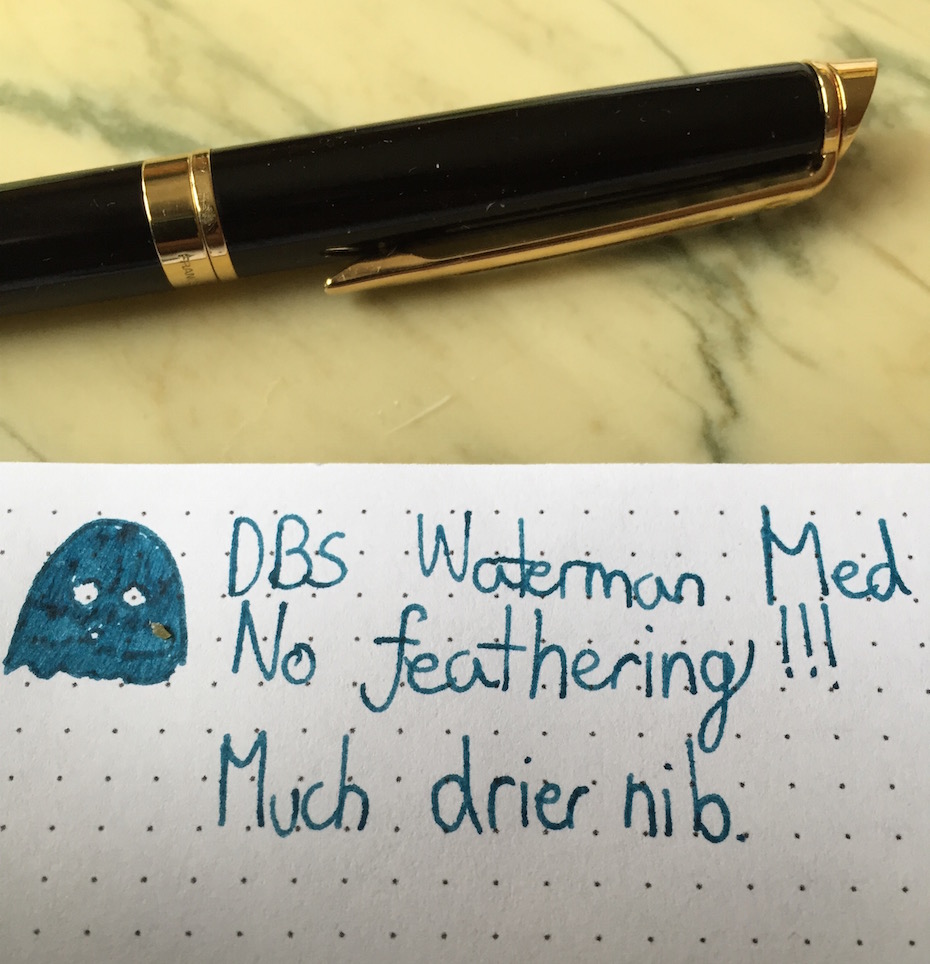 FRAN
DBS Waterman Med
No feathering!!!
Much drier nib.